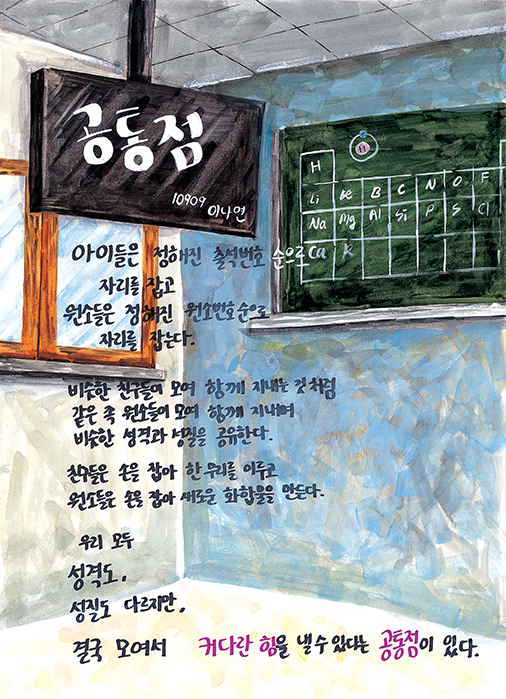 공통점
10909 이나연
H
H
Li Be B C N O F
Na Mg Al Si P S Cl
Ca K
아이들은 정해진 출석번호 순으로
자리를 잡고
원소들은 정해진 원소번호순으로
자리를 잡는다.
비슷한 친구들이 모여 함께 지내는 것처럼
같은 족 원소들이 모여 함께 지내며
비슷한 성격과 성질을 공유한다.
친구들은 손을 잡아 한 우리를 이루고
원소들은 손을 잡아 새로운 화합물을 만든다.
우리 모두
성격도,
성질도 다르지만,
결국 모여서 커다란 힘을 낼 수 있다는 공통점이 있다.